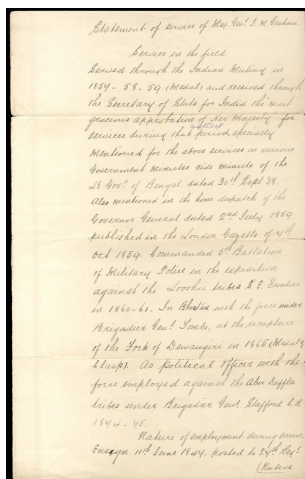 Statement of service of Maj. Genl. J. M. Graham
Service in the field
Served through the Indian Mutiny in
1857-58-59 (Medal) and received through
the Secretary of State for India the most
gracious approbation of Her Majesty for
services during that period, specially
mentioned for the above services in various
Government minutes vide minute of the
Lt Govr. of Bengal dated 30th Sept 58.
Also mentioned in the home despatch of the
Governor General dated 2nd July 1859
published in the London Gazette of 4th
Oct 1859. Commanded 5th Battalion
of Military Police in the expedition
against the Looshai tribes S. E. Frontier
in 1860-61. In Bhootan with the force under
Brigadier Genl. Tombs, at the recapture
of the Fort of Dewangiri in 1865 (Medal &
Clasp). As political officer with the
force employed against the Abor Duffla
tribes under Brigadier Genl. Stafford C.B.
1874-75.
Nature of employment during service
Ensign 11th June 1844. posted to 29th Regt.
(Native